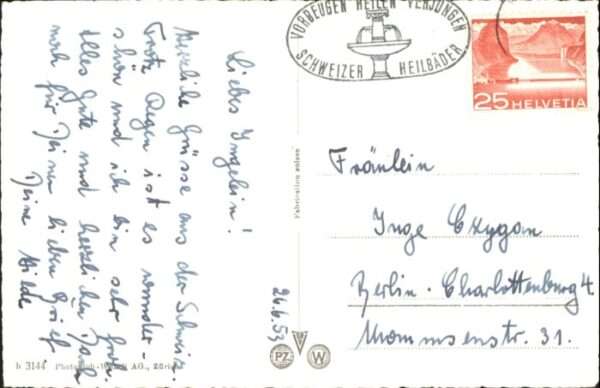 Liebes Ingelein!
Herzliche Grüsse aus der Schweiz.
Trotz Regen ist es wunder-
schön und ich bin sehr froh.
Alles Gute und herzlichen Dank
noch für Deinen lieben Brief
Deine Hilde
26.6.53
VORBEUGEN HEILEN VERJÜNGEN
SCHWEIZER HEILBÄDER
25 HELVETIA
Fräulein
Inge Czygan
Berlin-Charlottenburg 4
Mommsenstr. 31.
Fabrication suisse
PZ W
b 3144 AG., Zürich